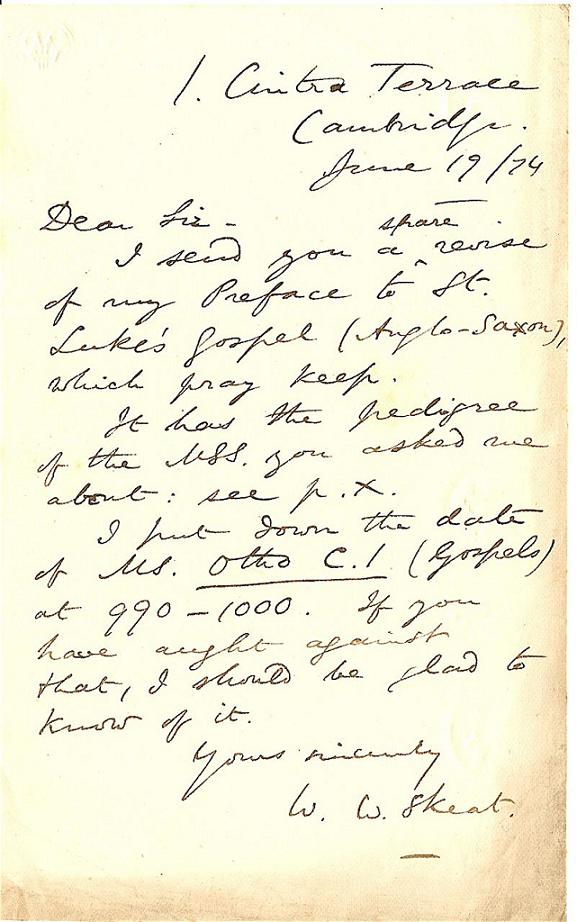 1. Cintra Terrace
Cambridge.
June 19/74
Dear Sir -
I send you a ^spare revise
of my Preface to St.
Luke's Gospel (Anglo-Saxon),
which pray keep.
It has the pedigree
of the MSS. you asked me
about: see p. X.
I put down the date
of MS. Otho C.1 (Gospels)
at 990-1000. If you
have aught against
that, I should be glad to
know of it.
Yours sincerely
W. W. Skeat.